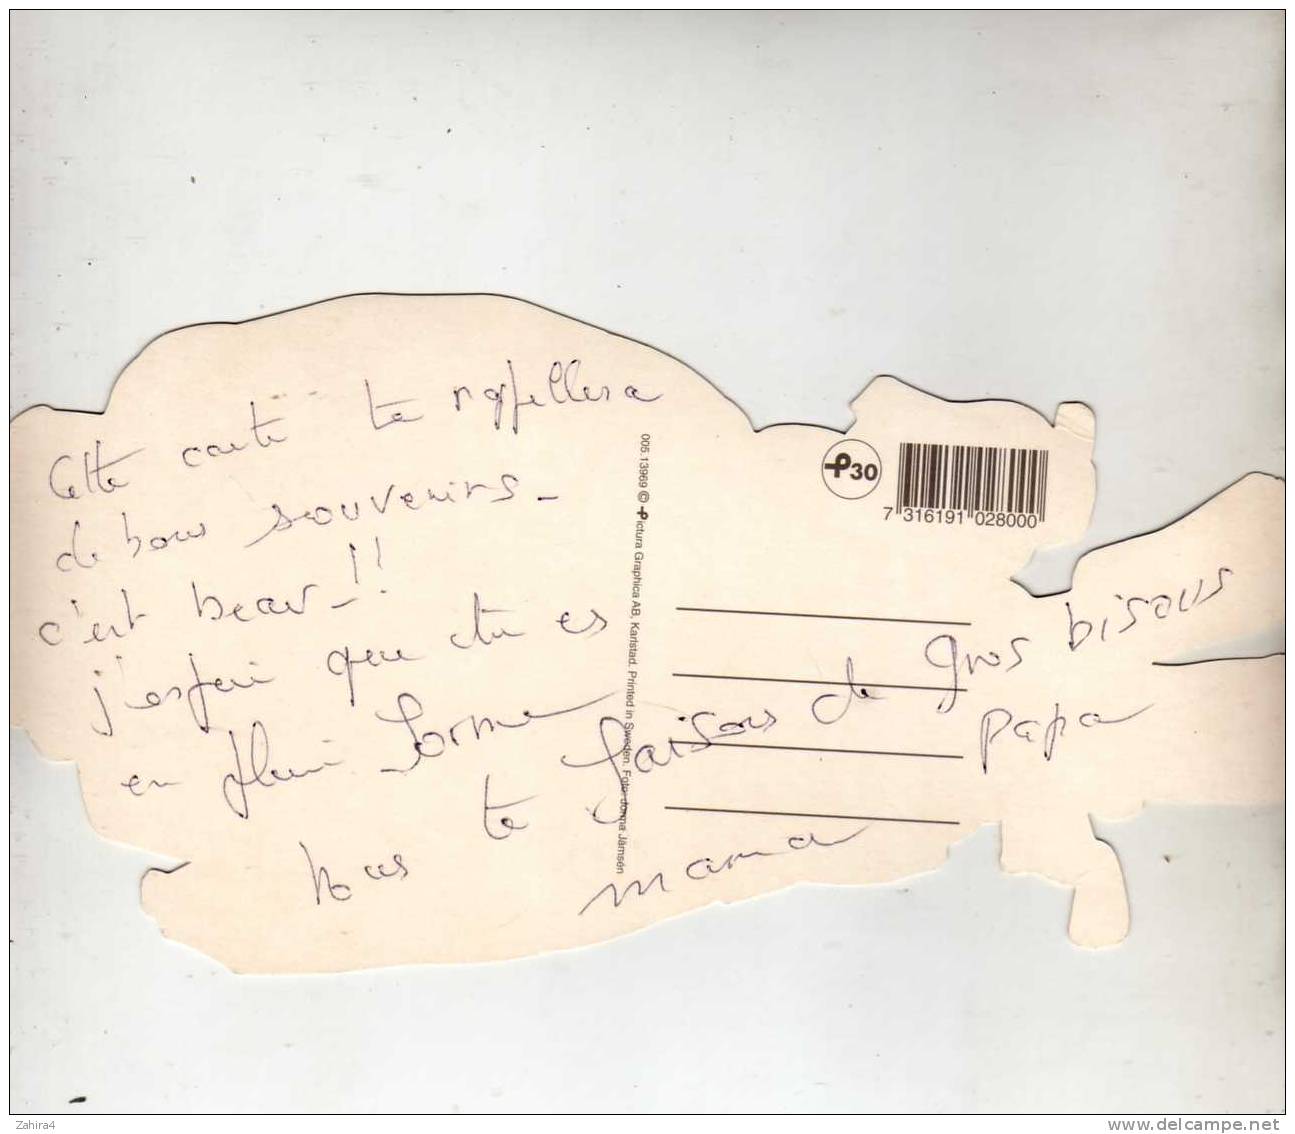 Cette carte te rappellera
de bons souvenirs -
c'est beau - !!
j'espère que tu es
en pleine forme
Nous te faisons de gros bisous
maman papa
005.13969 © Pictura Graphica AB, Karlstad. Printed in Sweden. Foto: Jorma Jämsén
P30
7 316191 028000
Zahira4
www.delcampe.net